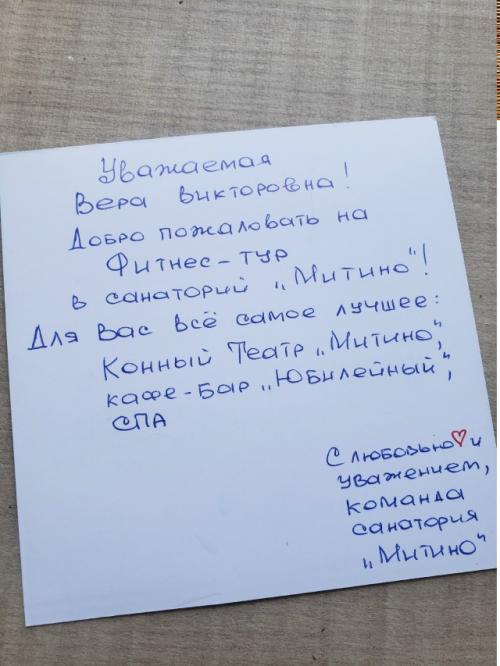 Уважаемая
Вера Викторовна!
Добро пожаловать на
Фитнес-тур
в санаторий „Митино“!
Для Вас всё самое лучшее:
Конный Театр „Митино“,
кафе-бар „Юбилейный“,
СПА
С любовью♡и
уважением,
команда
санатория
„Митино“